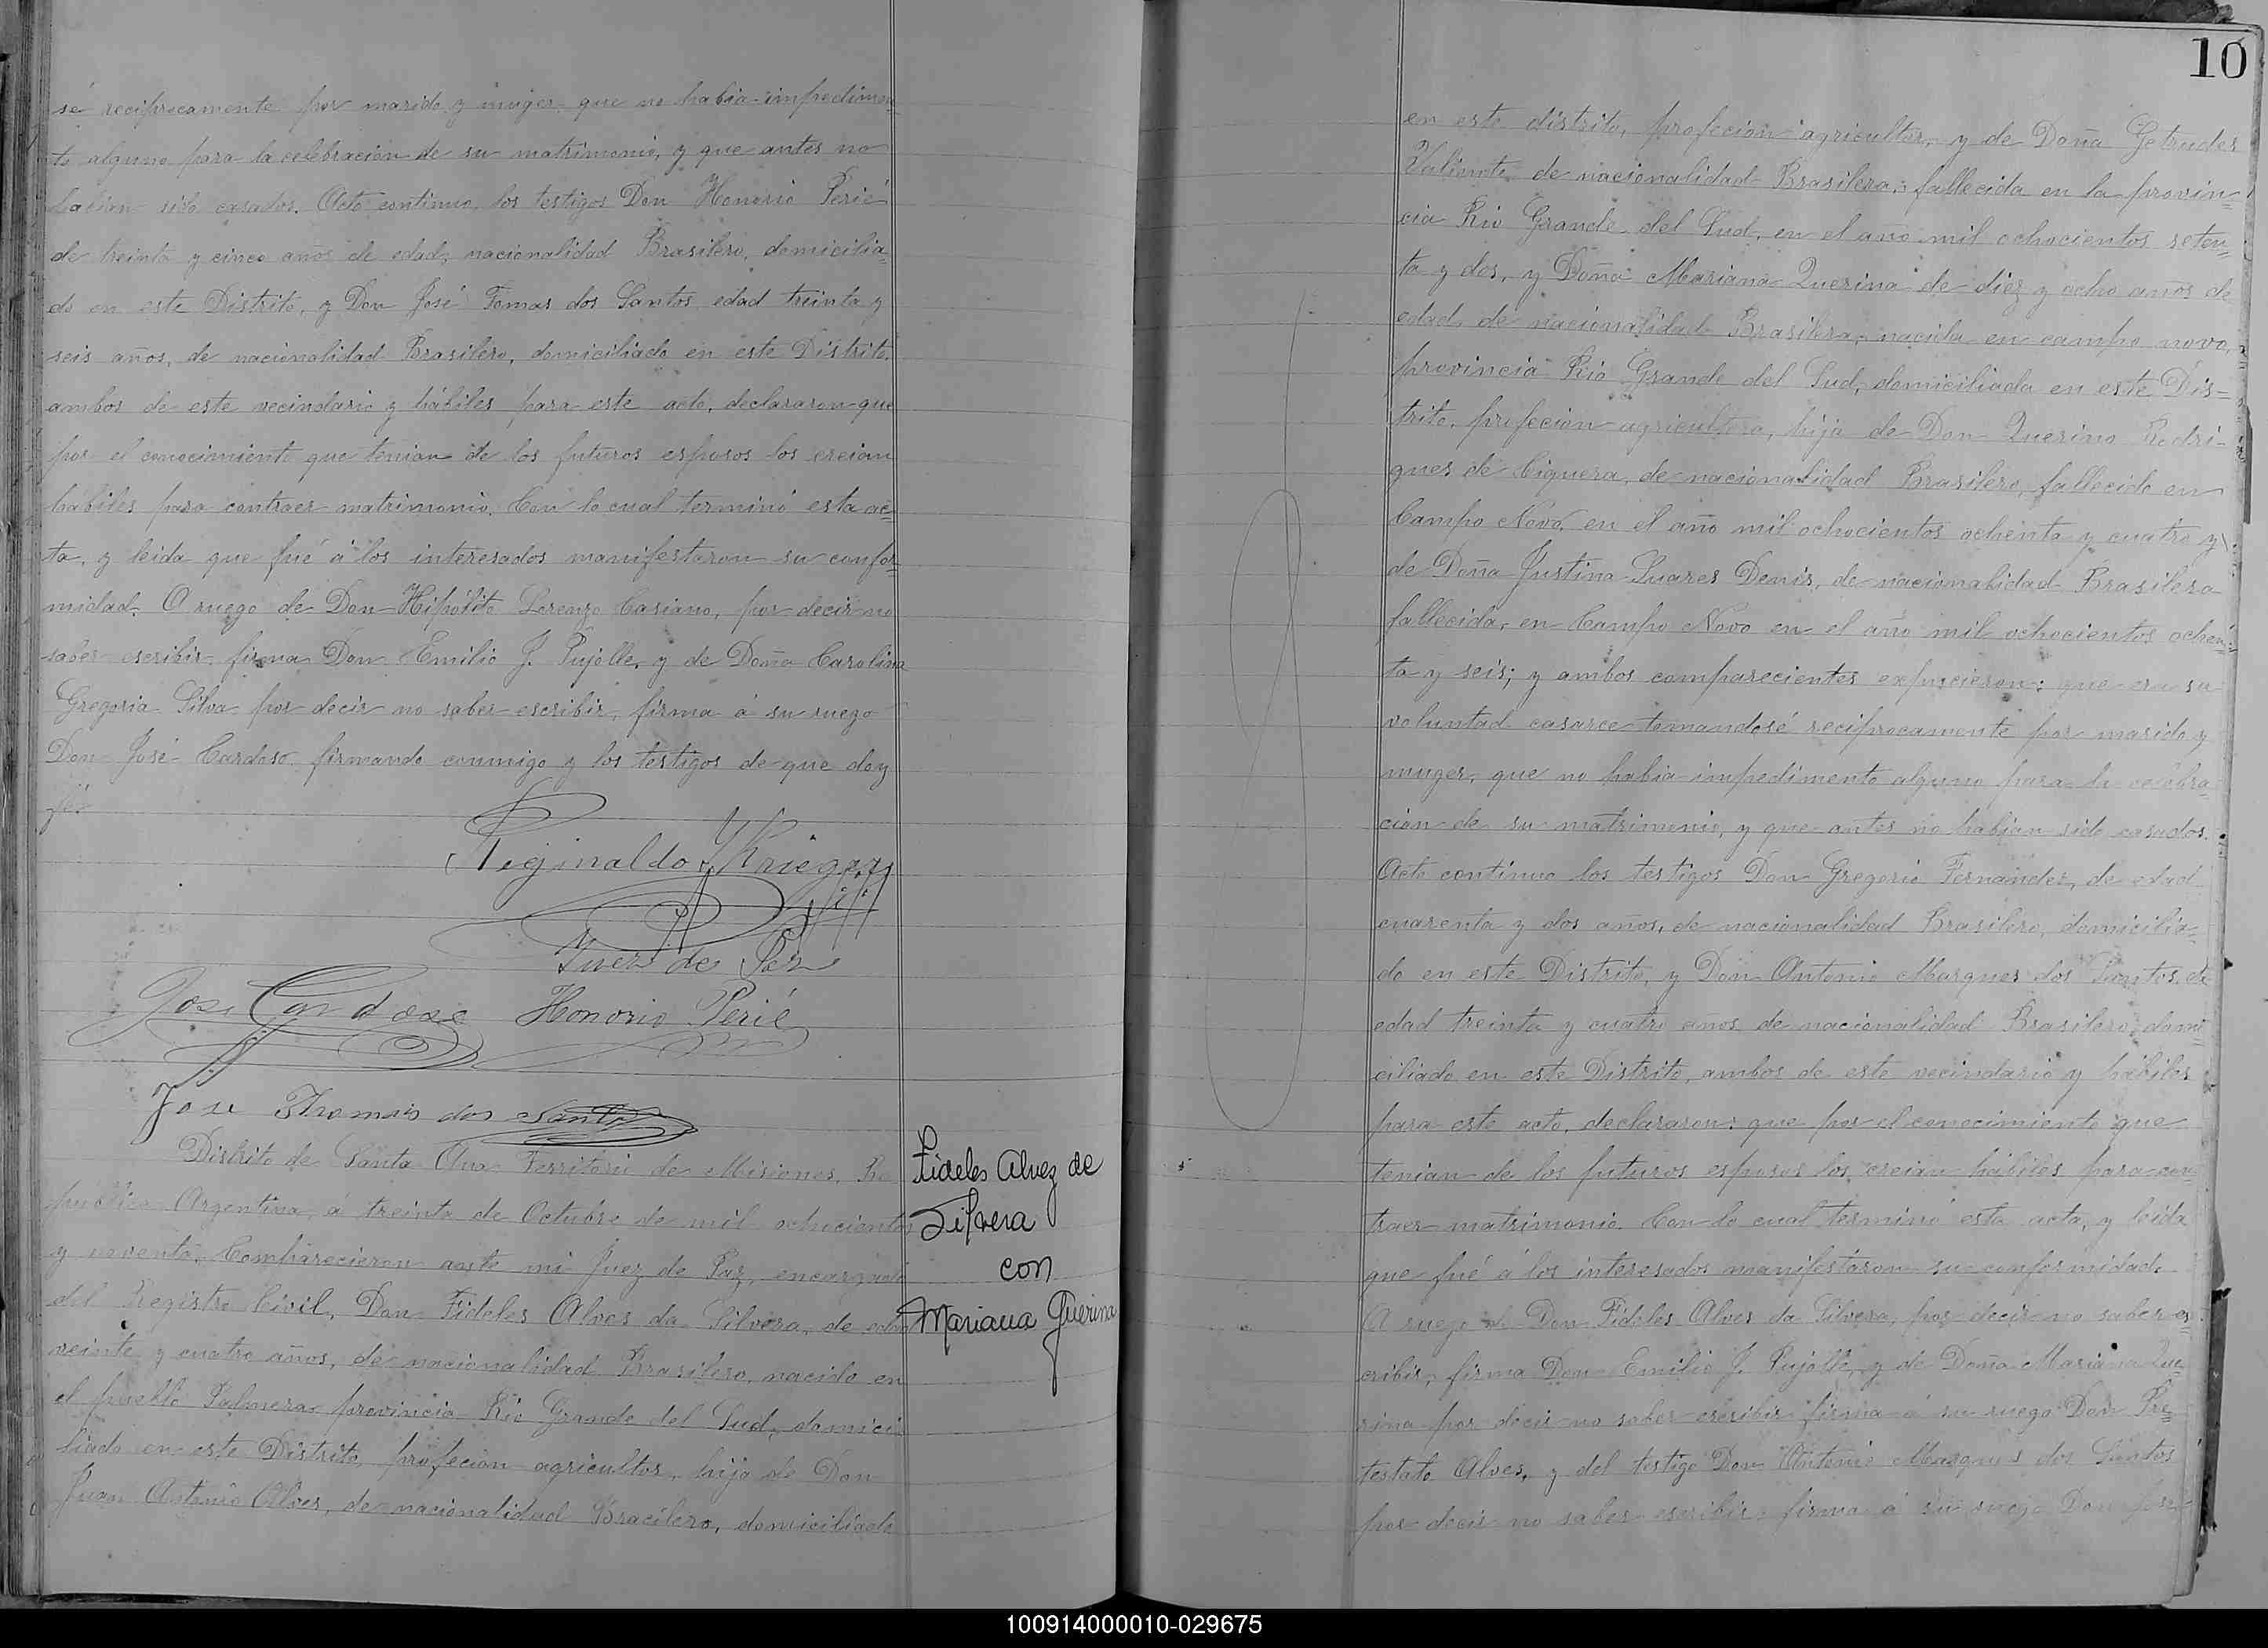 sé reciprocamente por marido y muger que no habia impedimen
to alguno para la celebracion de su matrimonio, y que antes no
habian sido casados. Acto continuo, los testigos Don Honorio Perié
de treinta y cinco años de edad, nacionalidad Brasilero, domicilia=
do en este Distrito, y Don José Tomas dos Santos edad treinta y
seis años, de nacionalidad Brasilero, domiciliado en este Distrito.
ambos de este vecindario y hábiles para este acto, declararon que
por el conocimiento que tenian de los futuros esposos los creian
habiles para contraer matrimonio. Con lo cual terminó esta ac=
ta, y leida que fué á los interesados manifestaron su confor=
midad. A ruego de Don Hipólito Lorenzo Casiano, por decir no
saber escribir firma Don Emilio J. Pujolle, y de Doña Carolina
Gregoria Silva por decir no saber escribir, firma á su ruego
Don José Cardoso firmando conmigo y los testigos de que doy
fé.
Reginaldo Krieger
Juez de Paz
Jose Cardoso Honorio Perié
Jose Thomais dos Santos
Distrito de Santa Ana Territorio de Misiones, Re
pública Argentina, á treinta de Octubre de mil ochocientos
y noventa. Comparecieron ante mi Juez de Paz, encargado
del Registro Civil, Don Fideles Alves da Silvera, de edad
veinte y cuatro años, de nacionalidad Brasilero, nacido en
el pueblo Palmera provincia Rio Grande del Sud, domici
liado en este Distrito, profecion agricultor, hijo de Don
Juan Antonio Alves, de nacionalidad Bracilero, domiciliado
Fideles Alvez de
Silvera
con
Mariana Querina
10
en este distrito, profecion agricultor, y de Doña Getrudes
Valiente de nacionalidad Brasilera, fallecida en la provin=
cia Rio Grande del Sud, en el año mil ochocientos seten=
ta y dos, y Doña Mariana Querina de diez y ocho años de
edad, de nacionalidad Brasilera, nacida en campo novo,
provincia Rio Grande del Sud, domiciliada en este Dis=
trito, profecion agricultora, hija de Don Querino Rodri=
gues de Ciquera, de nacionalidad Brasilero, fallecido en
Campo Novo, en el año mil ochocientos ochenta y cuatro y
de Doña Justina Suares Denis, de nacionalidad Brasilera
fallecida, en Campo Novo en el año mil ochocientos ochen=
ta y seis; y ambos comparecientes expucieron: que era su
voluntad casarce tomandosé reciprocamente por marido y
muger, que no habia impedimento alguno para la celebra=
cion de su matrimonio, y que antes no habian sido casados.
Acto continuo los testigos Don Gregorio Fernandes, de edad
cuarenta y dos años, de nacionalidad Brasilero, domicilia=
do en este Distrito, y Don Antonio Marques dos Santos de
edad treinta y cuatro años de nacionalidad Brasilero, domi
ciliado en este Distrito, ambos de este vecindario y hábiles
para este acto, declararon: que por el conocimiento que
tenian de los futuros esposos los creian hábiles para con=
traer matrimonio. Con lo cual terminó esta acta, y leida
que fué á los interesados manifestaron su conformidad.
A ruego de Don Fideles Alves da Silvera, por decir no saber es=
cribir, firma Don Emilio J. Pujolle, y de Doña Mariana Que=
rina por decir no saber escribir firma á su ruego Don Pre=
testato Alves, y del testigo Don Antonio Marques dos Santos
por decir no saber escribir, firma á su ruego Don
100914000010-029675